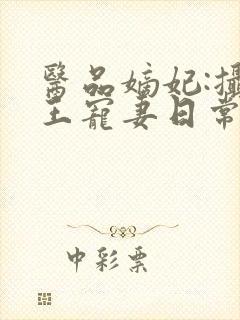 醫品嫡妃:攝
王寵妻日常
中彩票